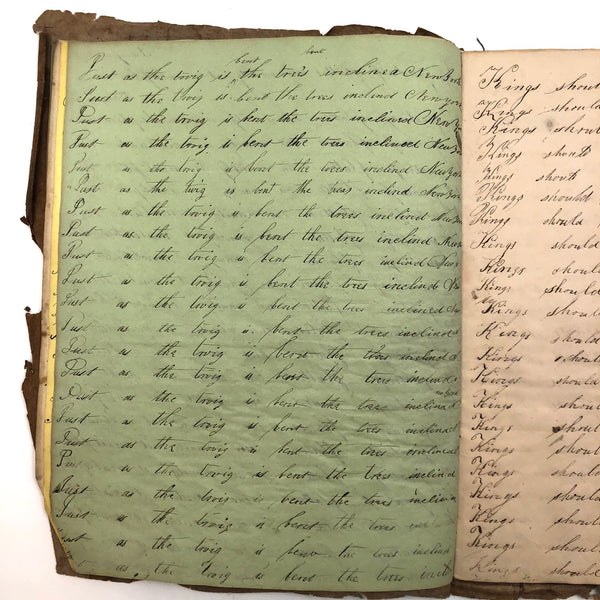 bent bent
Just as the twig is the tree's inclined New York
Just as the twig is bent the trees inclind New york
Just as the twig is bent the trees inclined New Yo
Just as the twig is bent the trees inclined New Yor
Just as the twig is bent the trees inclind New Yor
Just as the twig is bent the trees inclind New York
Just as the twig is bent the trees inclined New
Just as the twig is bent the trees inclined New
Just as the twig is bent the trees inclind New
Just as the twig is bent the trees inclind
Just as the twig is bent the trees inclined
Just as the twig is bent the trees inclined
Just as the twig is bent the trees inclined
Just as the twig is bent the trees inclined
Just as the twig is bent the tree inclined
Just as the twig is bent the trees inclined
Just as the twig is bent the trees inclined
Just as the twig is bent the trees inclined
Just as the twig is bent the trees inclin
Just as the twig is bent the trees
Just as the twig is the trees inclin
as the twig is bent the trees incl
Kings shoul
Kings shoul
Kings shoul
Kings shoul
Kings shoul
Kings shoould
Kings should
Kings should
Kings should
Kings should
Kings should
Kings should
Kings should
Kings should
Kings should
Kings should
Kings should
Kings should
Kings should
Kings should
Kings should
Kings should